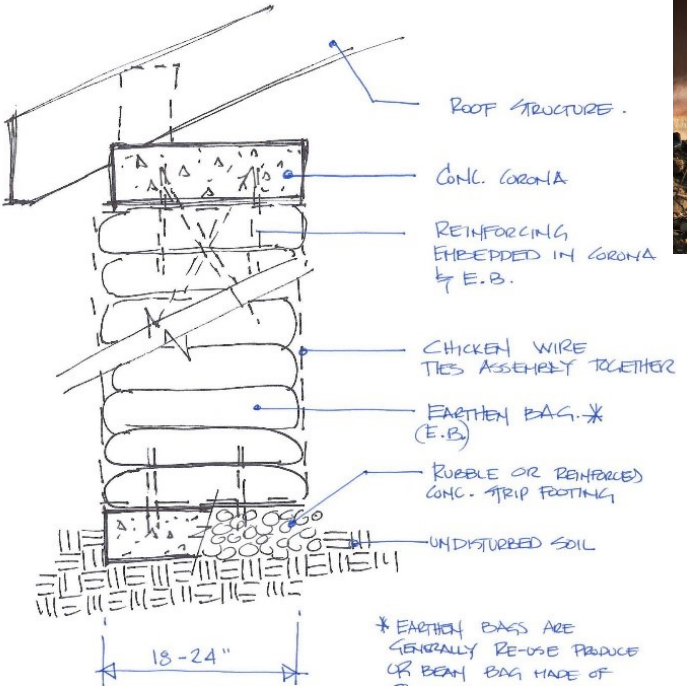 ROOF STRUCTURE.
CONC. CORONA
REINFORCING
EMBEDDED IN CORONA
& E.B.
CHICKEN WIRE
TIES ASSEMBLY TOGETHER
EARTHEN BAG.*
(E.B)
RUBBLE OR REINFORCED
CONC. STRIP FOOTING
UNDISTURBED SOIL
* EARTHEN BAGS ARE
GENERALLY RE-USE PRODUCE
OR BEAN BAG MADE OF
18-24"